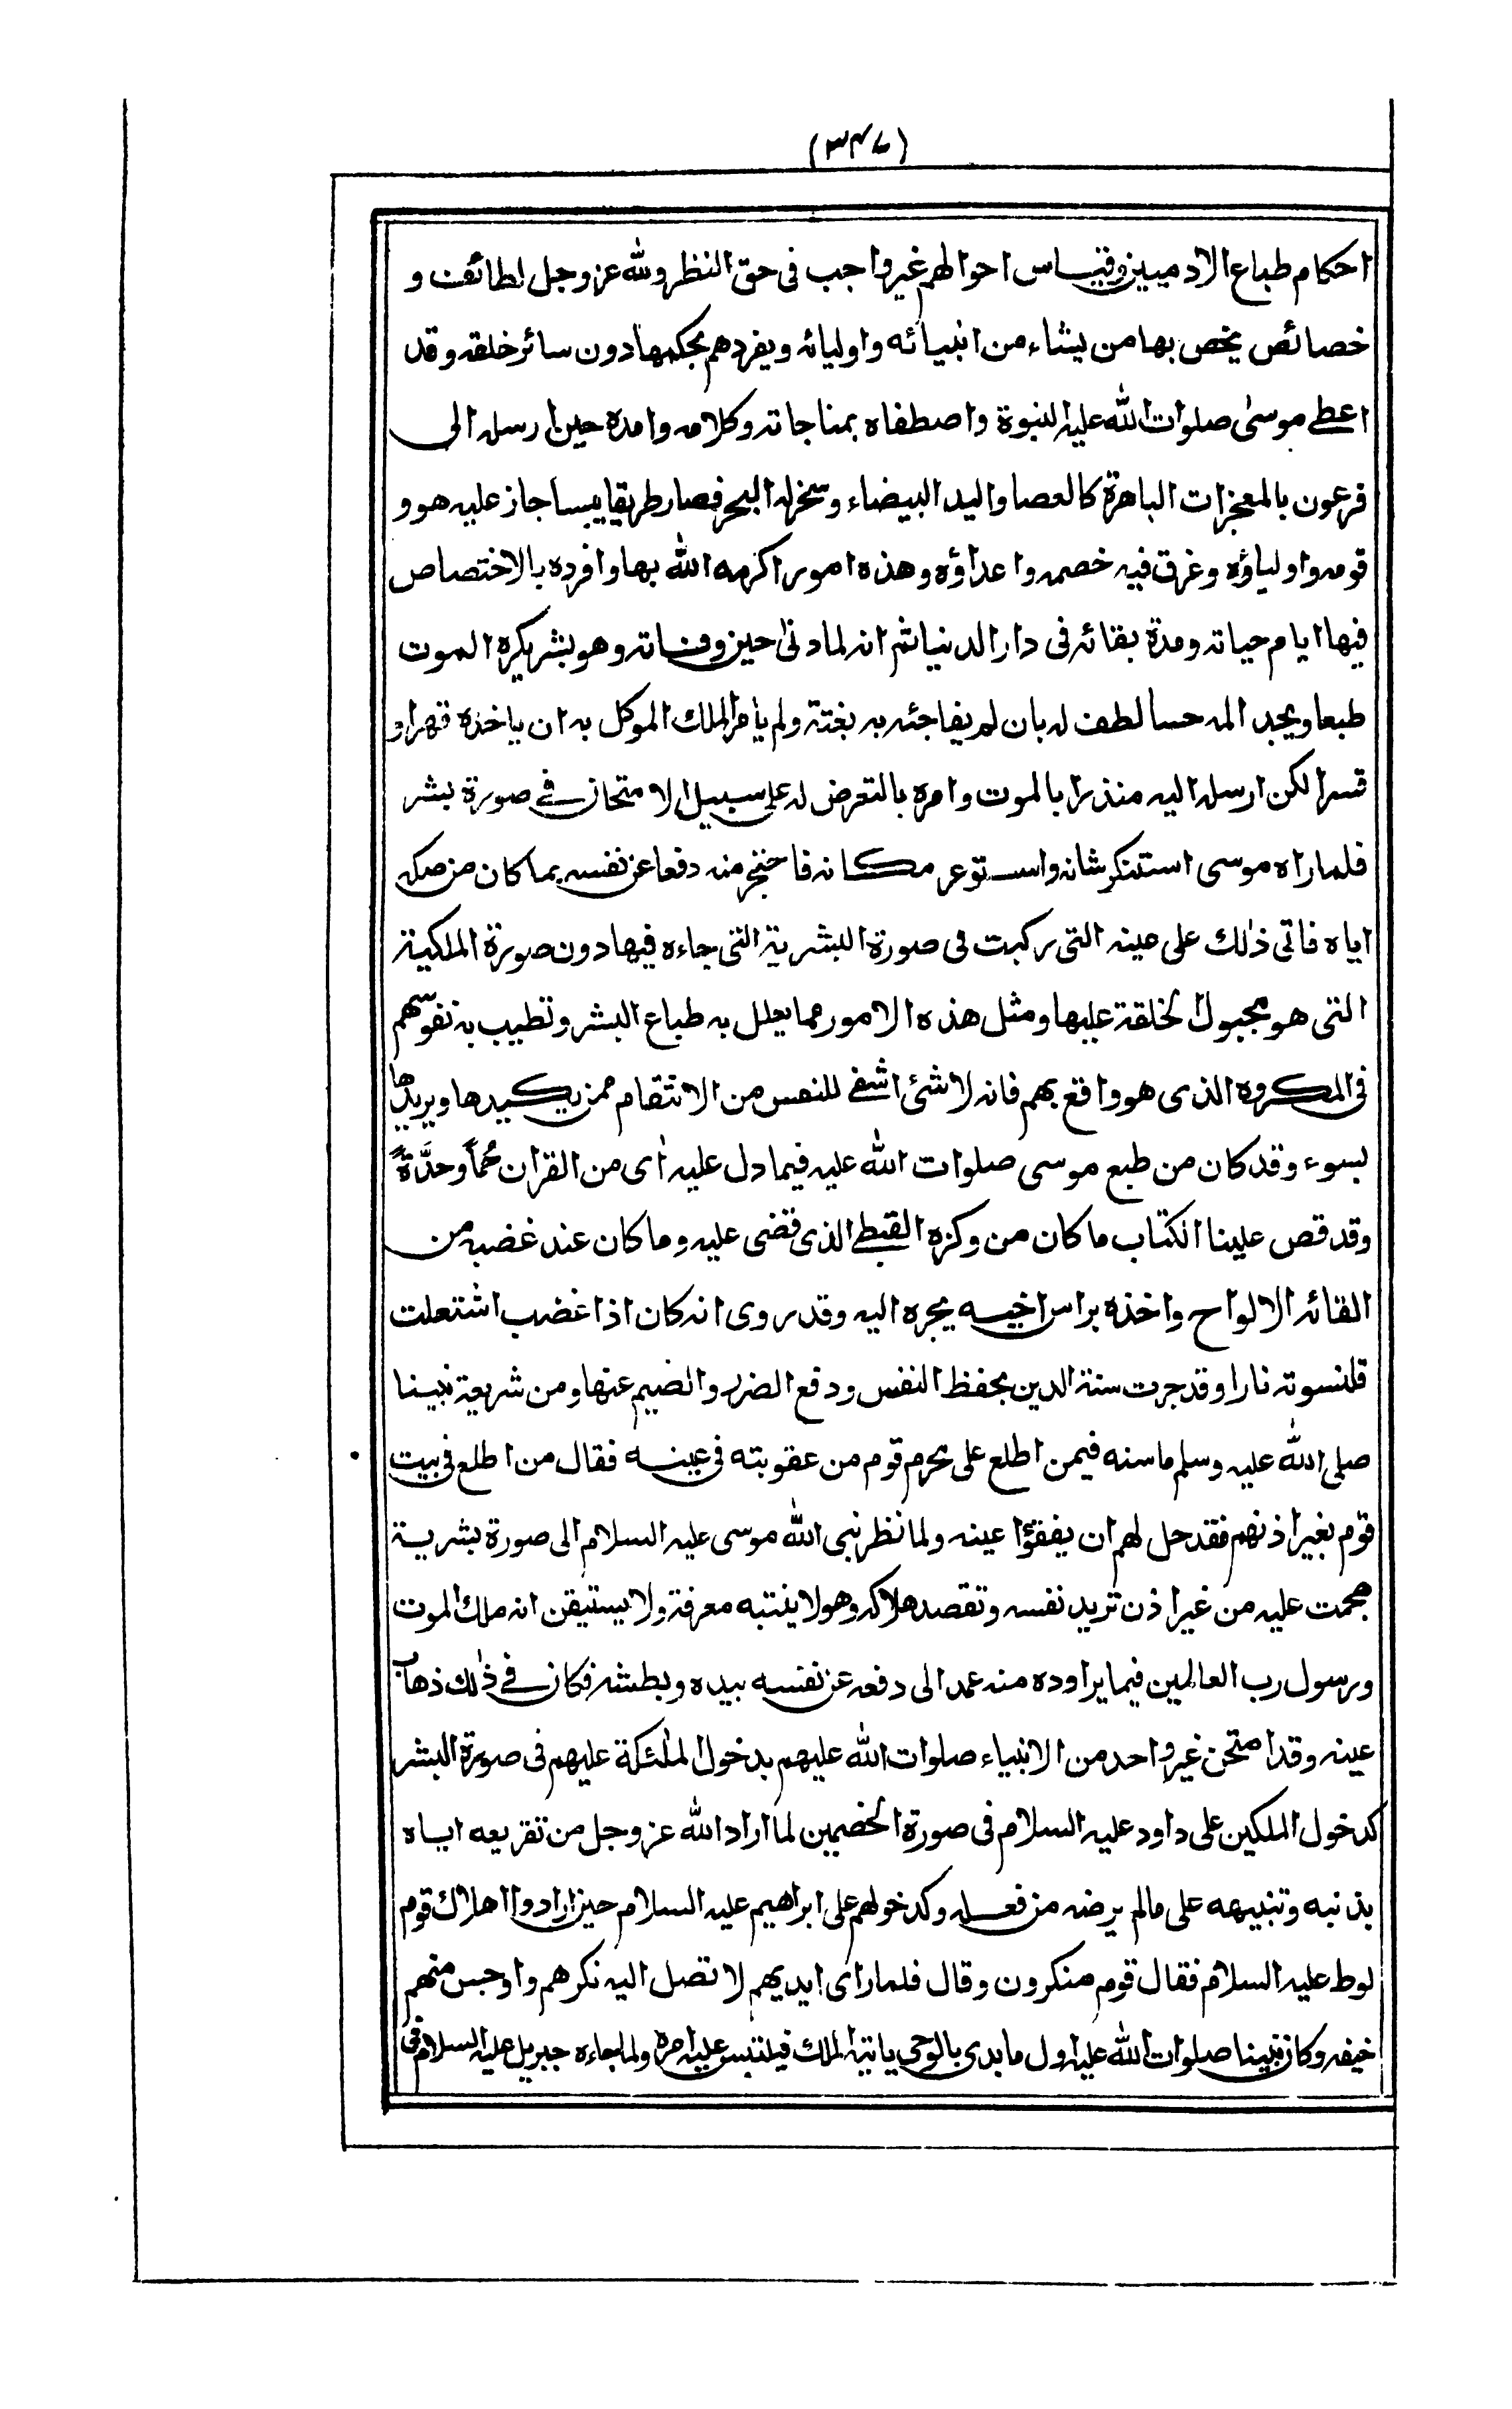 (٣٤٧)
احكام طباع الادميين وقياس احوالهم غير واجب فى حق النظر ولله عز وجل لطائف و
خصائص يخص بها من يشاء من انبيائه واوليائه ويفردهم بحكمها دون سائر خلقه وقد
اعطى موسىٰ صلوات الله عليه النبوة واصطفاه بمناجاته وكلامه وامده حين ارسله الى
فرعون بالمعجزات الباهرة كالعصا واليد البيضاء وسخر له البحر فصار طريقا يبسا جاز عليه هو و
قومه واولياؤه وغرق فيه خصمه واعداؤه وهذه امور اكرمه الله بها وافرده بالاختصاص
فيها ايام حياته ومدة بقائه فى دار الدنيا ثم انه لما دنىٰ حين وفاته وهو بشر يكره الموت
طبعا ويجد المه حسا لطف له بان لم يفاجئه به بغتة ولم يأمر الملك الموكل به ان ياخذه قهرا و
قسرا لكن ارسله اليه منذرا بالموت وامره بالتعرض له على سبيل الامتحان فى صورة بشر
فلما راه موسى استنكر شانه واستوعر مكانه فاحتجر منه دفعا عن نفسه بما كان من صكه
اياه فاتى ذٰلك على عينه التى ركبت فى صورة البشرية التى جاءه فيها دون صورة الملكية
التى هو مجبول الخلقة عليها ومثل هذه الامور مما يعلل به طباع البشر وتطيب به نفوسهم
فى المكروه الذى هو واقع بهم فانه لا شئ اشفى للنفس من الانتقام ممن يكيدها ويريدها
بسوء وقد كان من طبع موسى صلوات الله عليه فيما دل عليه اٰى من القران حُمّاً وحدَّةً
وقد قص علينا الكتاب ما كان من وكزه القبطى الذى قضى عليه وما كان عند غضبه من
القائه الالواح واخذه براس اخيه يجره اليه وقد روى انه كان اذا غضب اشتعلت
قلنسوته نارا وقد جرت سنة الدين بحفظ النفس ودفع الضرر والضيم عنها ومن شريعة نبينا
صلى الله عليه وسلم ما سنه فيمن اطلع على محرم قوم من عقوبته فى عينه فقال من اطلع فى بيت
قوم بغير اذنهم فقد حل لهم ان يفقؤا عينه ولما نظر نبى الله موسى عليه السلام الى صورة بشرية
هجمت عليه من غير اذن تريد نفسه وتقصد هلاكه وهو لا ينتبه معرفة ولا يستيقن انه ملك الموت
ورسول رب العالمين فيما يراوده منه عمد الى دفعه عن نفسه بيده وبطشه فكان فى ذٰلك ذهاب
عينه وقد امتحن غير واحد من الانبياء صلوات الله عليهم بدخول الملٰئكة عليهم فى صورة البشر
كدخول الملكين على داود عليه السلام فى صورة الخصمين لما اراد الله عز وجل من تقريعه اياه
بذنبه وتنبيهه على مالم يرضه من فعله وكدخولهم على ابراهيم عليه السلام حين ارادوا اهلاك قوم
لوط عليه السلام فقال قوم منكرون وقال فلما راى ايديهم لا تصل اليه نكرهم واوجس منهم
خيفه وكان نبينا صلوات الله عليه اول ما بدى بالوحى ياتيه الملك فيلتبس عليه امره ولما جاءه جبريل عليه السلام فى